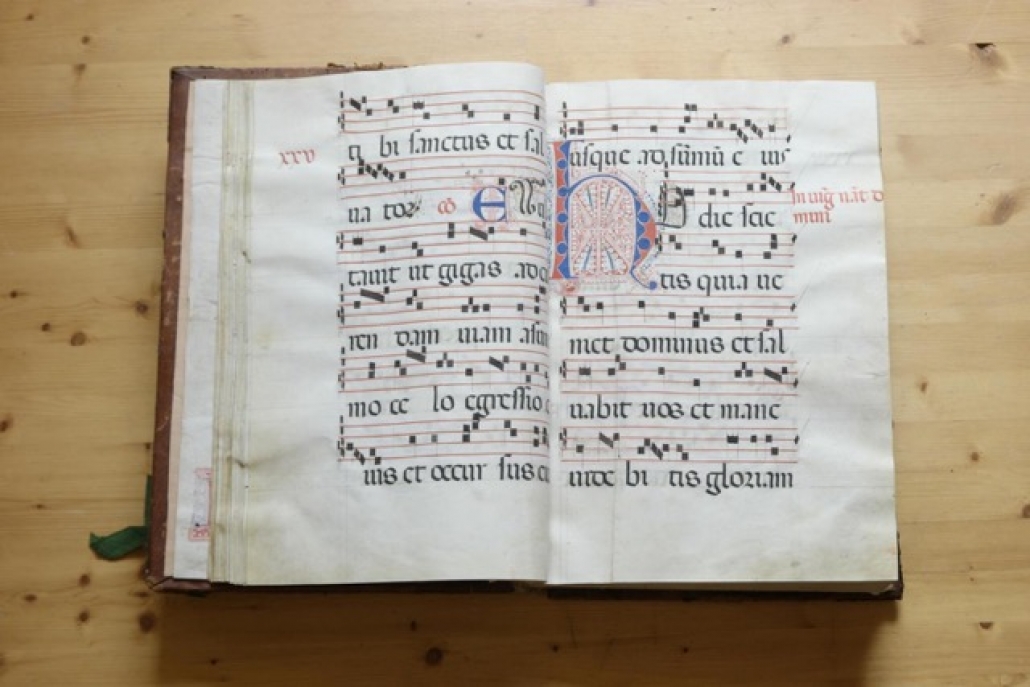 xxv
ti bi sanctus et sal
ua tor cō E
tauit ut gigas ad c
ren dam uiam asum
mo ce lo egressio e
ius et occur sus ei
usque ad sūmū e ius
H O die scie
In uig̃ nat̃ do
mini
tis quia ue
niet dominus et sal
uabit uos et mane
uide bi tis gloriam